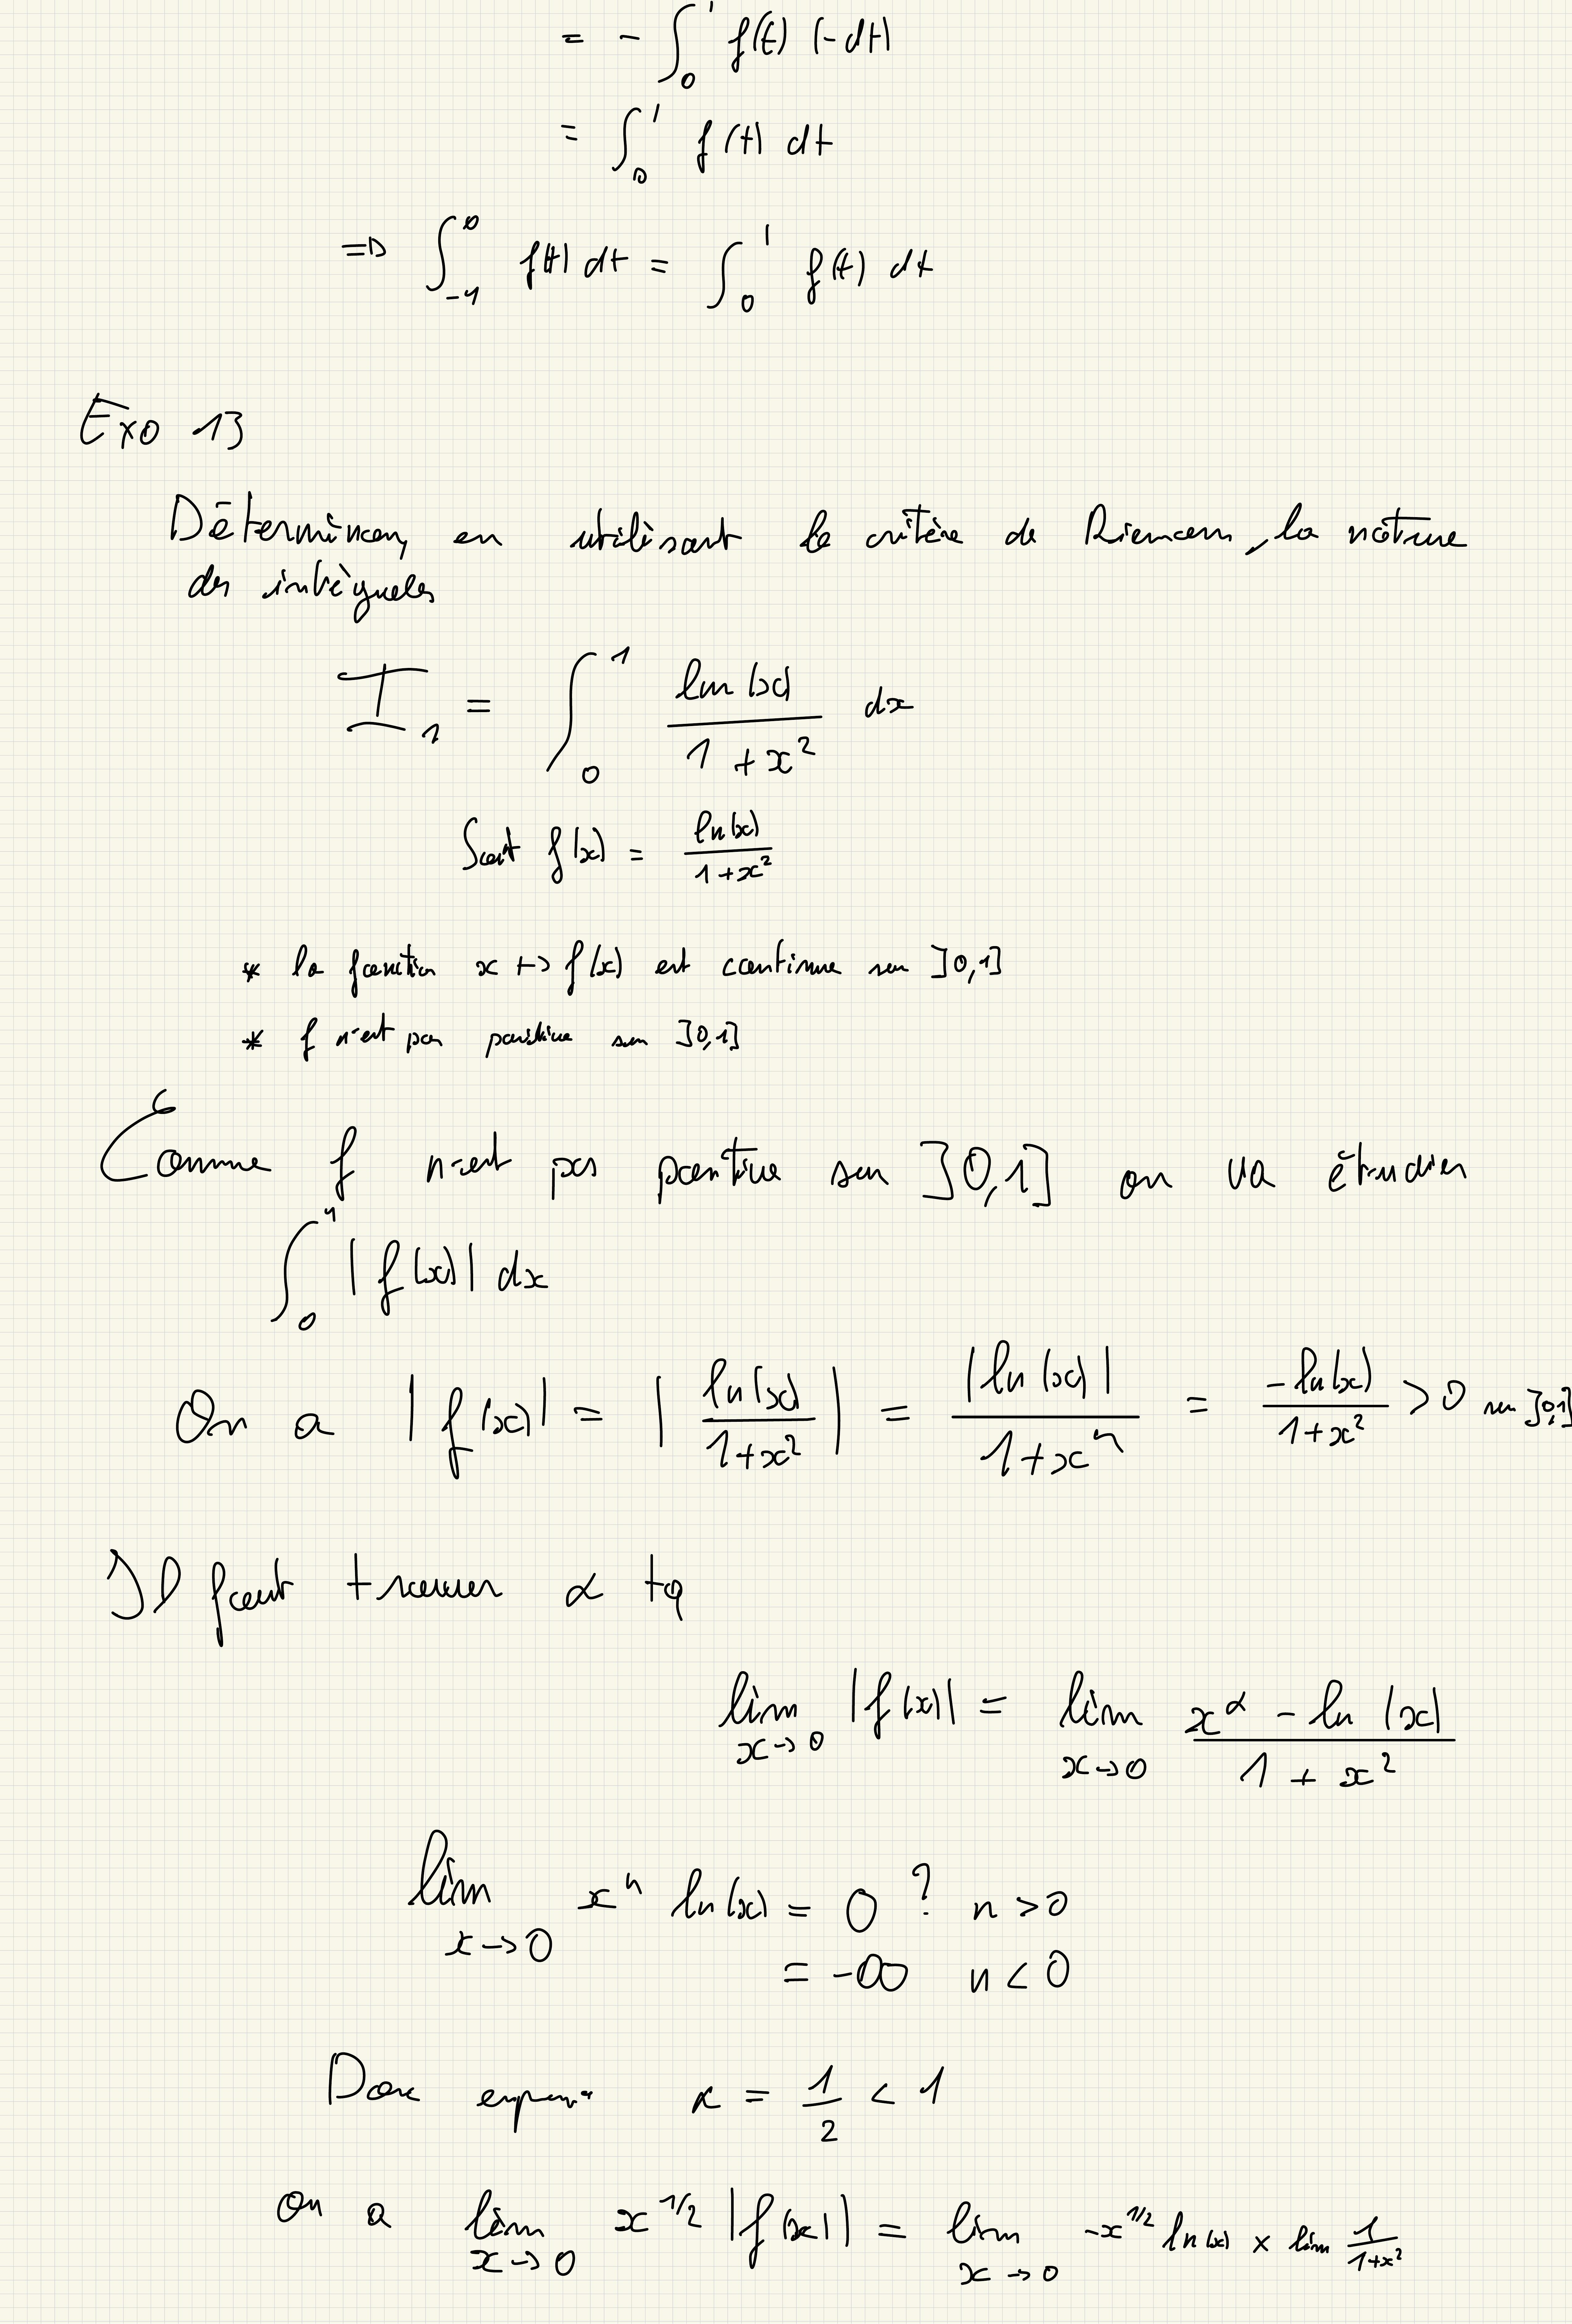 = - ∫₀¹ f(t) (-dt)
= ∫₀¹ f(t) dt
=> ∫₋₁⁰ f(t) dt = ∫₀¹ f(t) dt
Exo 13
Déterminer, en utilisant le critère de Riemann, la nature
des intégrales
I₁ = ∫₀¹ ln(x) / (1 + x²) dx
Soit f(x) = ln(x) / (1+x²)
* la fonction x ↦ f(x) est continue sur ]0,1]
* f n'est pas positive sur ]0,1]
Comme f n'est pas positive sur ]0,1] on va étudier
∫₀¹ |f(x)| dx
On a |f(x)| = | ln(x) / (1+x²) | = |ln(x)| / (1+x²) = -ln(x) / (1+x²) > 0 sur ]0,1]
Il faut trouver α tq
lim x→0 |f(x)| = lim x→0 (x^α - ln(x)) / (1 + x²)
lim x→0 xⁿ ln(x) = 0 ? n > 0
= -∞ n < 0
Donc α = 1/2 < 1
On a lim x→0 x^1/2 |f(x)| = lim x→0 -x^1/2 ln(x) × lim 1/(1+x²)